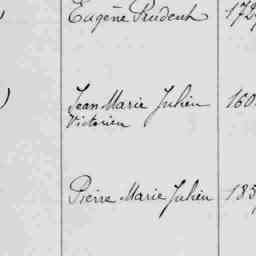 Eugène Prudent 172
Jean Marie Julien 160
Victorien
Pierre Marie Julien 185